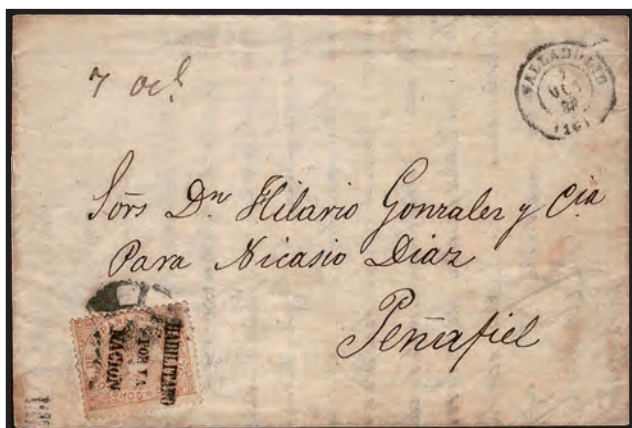 7 oct
VALLADOLID
7
OCT
(16)
Sors Dn Hilario Gonzalez y Cia
Para Nicasio Diaz
Peñafiel
HABILITADO
POR LA
NACION